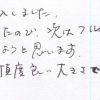 入しました。
たので、次はフル
ようと思います。
頂度良い大きさで